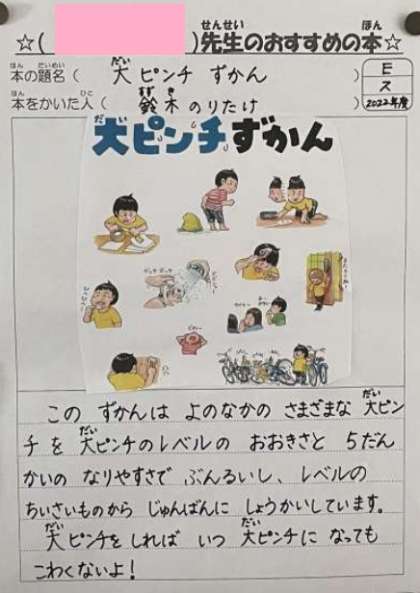 ☆( )先生のおすすめの本☆
本の題名 ( 大ピンチ ずかん )
本をかいた人 ( 鈴木のりたけ )
E
ス
2022年度
大ピンチずかん
このずかんは よのなかの さまざまな 大ピン
チを 大ピンチのレベルの おおきさと 5だん
かいの なりやすさで ぶんるいし、レベルの
ちいさいものから じゅんばんに しょうかいしています。
大ピンチをしれば いつ 大ピンチに なっても
こわくないよ！